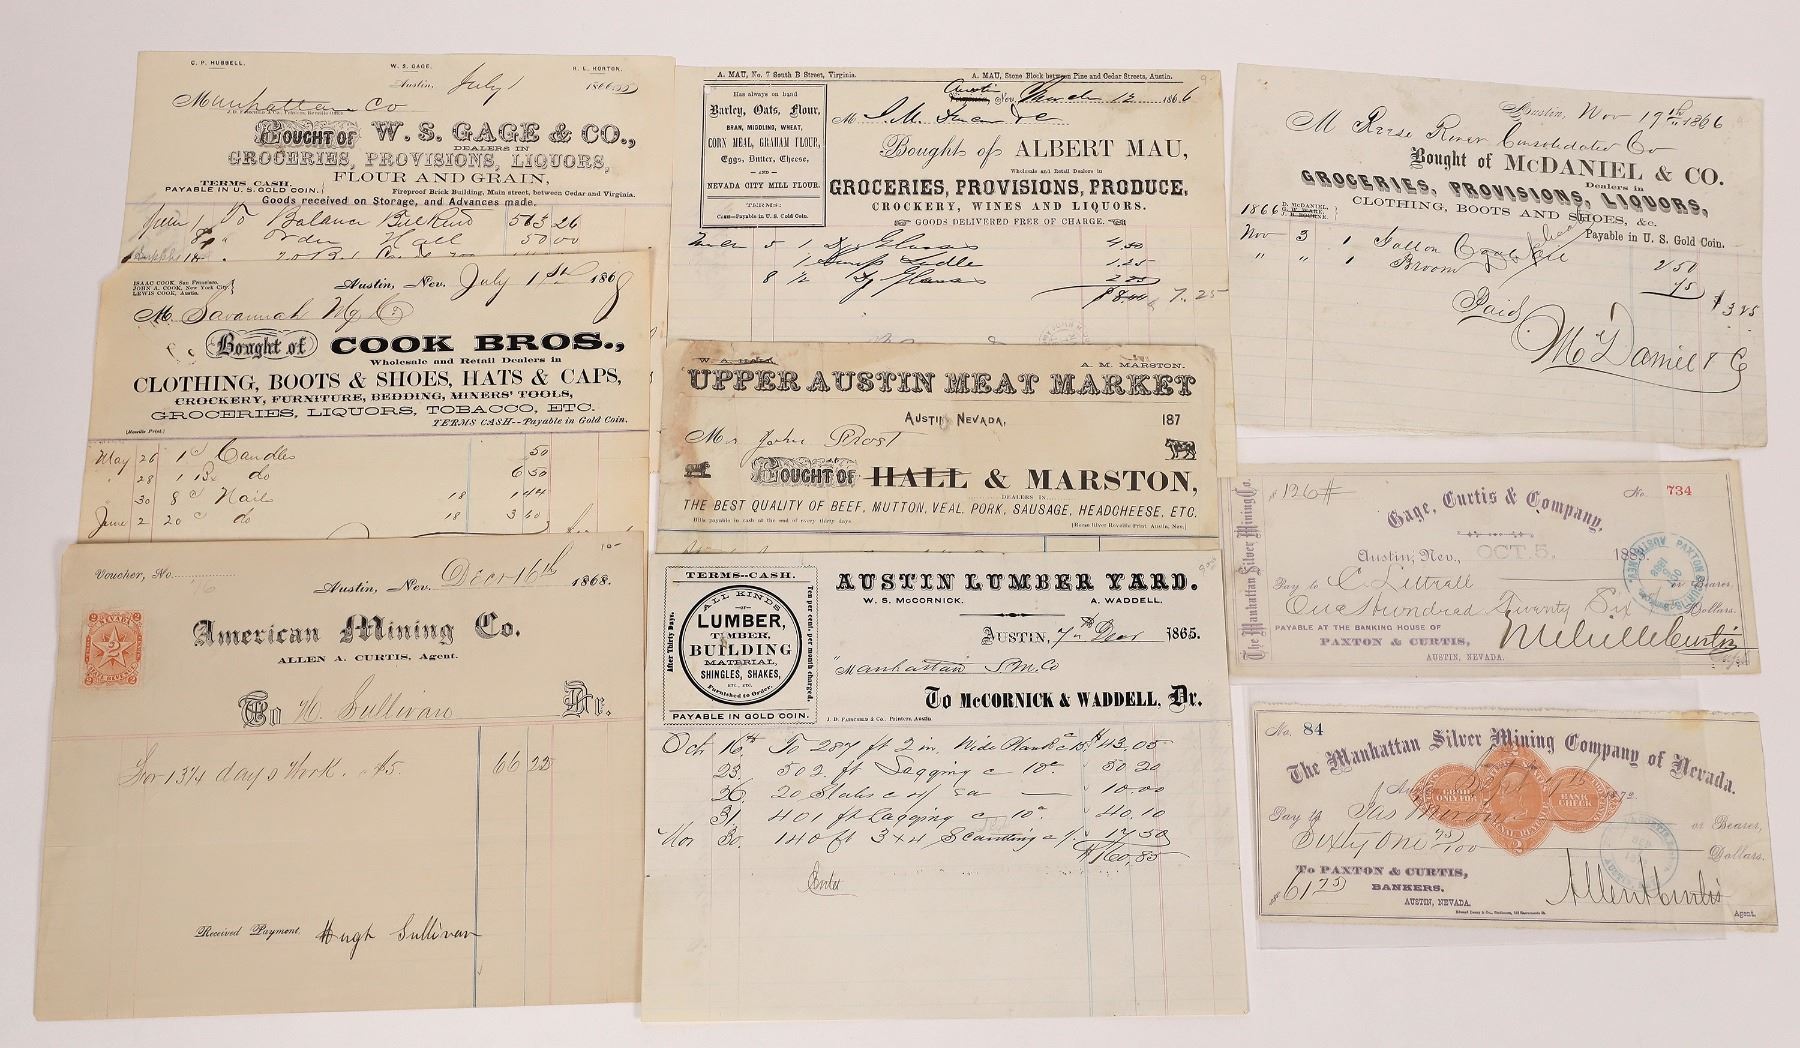 C. P. HUBBELL. W. S. GAGE. H. L. HORTON.
Austin, July 1 1866
Manhattan Co
J. D. FAIRCHILD & Co., Printers, Reveille Office
BOUGHT OF W. S. GAGE & CO.,
DEALERS IN
GROCERIES, PROVISIONS, LIQUORS,
FLOUR AND GRAIN,
TERMS CASH.
PAYABLE IN U.S. GOLD COIN.
Fireproof Brick Building, Main street, between Cedar and Virginia.
Goods received on Storage, and Advances made.
1 To Balance Bill Rend 563 26
" Order Hall 50 00
ISAAC COOK, San Francisco.
JOHN A. COOK, New York City.
LEWIS COOK, Austin.
Austin, Nev. July 1st 1868
M. Savannah Mg Co
Bought of COOK BROS.,
Wholesale and Retail Dealers in
CLOTHING, BOOTS & SHOES, HATS & CAPS,
CROCKERY, FURNITURE, BEDDING, MINERS' TOOLS,
GROCERIES, LIQUORS, TOBACCO, ETC.
(Reveille Print.) TERMS CASH--Payable in Gold Coin.
May 26 1 Candles 50
" 28 1 Bx do 6 50
" 30 8 Nail 18 1 44
June 2 20 do 18 3 60
Voucher, No. 10-
Austin, Nev. Decr 16th 1868.
NEVADA
2
American Mining Co.
ALLEN A. CURTIS, Agent.
To H. Sullivan Dr.
For 13¼ days Work. @ 5. 66 25
Received Payment. Hugh Sullivan
A. MAU, No. 7 South B Street, Virginia. A. MAU, Stone Block between Pine and Cedar Streets, Austin. 9-
Has always on hand
Barley, Oats, Flour,
BRAN, MIDDLING, WHEAT,
CORN MEAL, GRAHAM FLOUR,
Eggs, Butter, Cheese,
— AND —
NEVADA CITY MILL FLOUR.
TERMS:
Cash—Payable in U. S. Gold Coin.
Austin
Virginia, Nev. March 12 1866
M
Bought of ALBERT MAU,
Wholesale and Retail Dealers in
GROCERIES, PROVISIONS, PRODUCE,
CROCKERY, WINES AND LIQUORS.
GOODS DELIVERED FREE OF CHARGE.
March 5 1 Dz Glasses 4.50
1 1.25
8 ½ Dz Glasses 2.25
$8.00 7.25
W. A. HALL A. M. MARSTON.
UPPER AUSTIN MEAT MARKET
AUSTIN NEVADA, 187
Mr John Frost
BOUGHT OF HALL & MARSTON,
DEALERS IN
THE BEST QUALITY OF BEEF, MUTTON, VEAL, PORK, SAUSAGE, HEADCHEESE, ETC.
Bills payable in cash at the end of every thirty days. [Reese River Reveille Print Austin, Nev.]
TERMS--CASH.
After Thirty Days,
Ten per cent. per month charged.
ALL KINDS
OF
LUMBER,
TIMBER,
BUILDING
MATERIAL,
SHINGLES, SHAKES,
ETC., ETC.
Furnished to Order.
PAYABLE IN GOLD COIN.
AUSTIN LUMBER YARD.
W. S. McCORNICK. A. WADDELL.
AUSTIN, 7th Decr 1865.
Manhattan S.M.Co
To McCORNICK & WADDELL, Dr.
J. D. FAIRCHILD & Co., Printers, Austin
Oct 16th To 287 ft 2 in. Wide Plank @ 15 $43.05
23. 502 ft Lagging @ 10c " 50 20
26 20 Stakes @ ea — " 10.00
31. 401 ft Lagging @ 10c " 40.10
Nov 30. 140 ft 3x4 Scantling @ " 17 50
$160,85
Austin, Nov 19th 1866
M Reese River Consolidated Co
Bought of McDANIEL & CO.
Dealers in
GROCERIES, PROVISIONS, LIQUORS,
CLOTHING, BOOTS AND SHOES, &c.
Payable in U. S. Gold Coin.
1866
Nov 3 1 Gallon Coal Oil 2 50
" " 1 Broom 75
$3.25
Paid
McDaniel & Co
The Manhattan Silver Mining Co.
$126# No. 734
Gage, Curtis & Company,
Austin, Nev. OCT. 5. 188
Pay to C. Littrall or Bearer,
One Hundred Twenty Six Dollars.
PAYABLE AT THE BANKING HOUSE OF
PAXTON & CURTIS,
AUSTIN, NEVADA.
Melville Curtis
PAXTON & CURTIS
AUSTIN, NEV.
No. 84
The Manhattan Silver Mining Company of Nevada.
1873
Pay to Jas or Bearer,
Sixty One 75/100 Dollars.
GOOD ONLY FOR
BANK CHECK
2
To PAXTON & CURTIS,
BANKERS.
AUSTIN, NEVADA.
$61 75
Allen A Curtis
Agent.